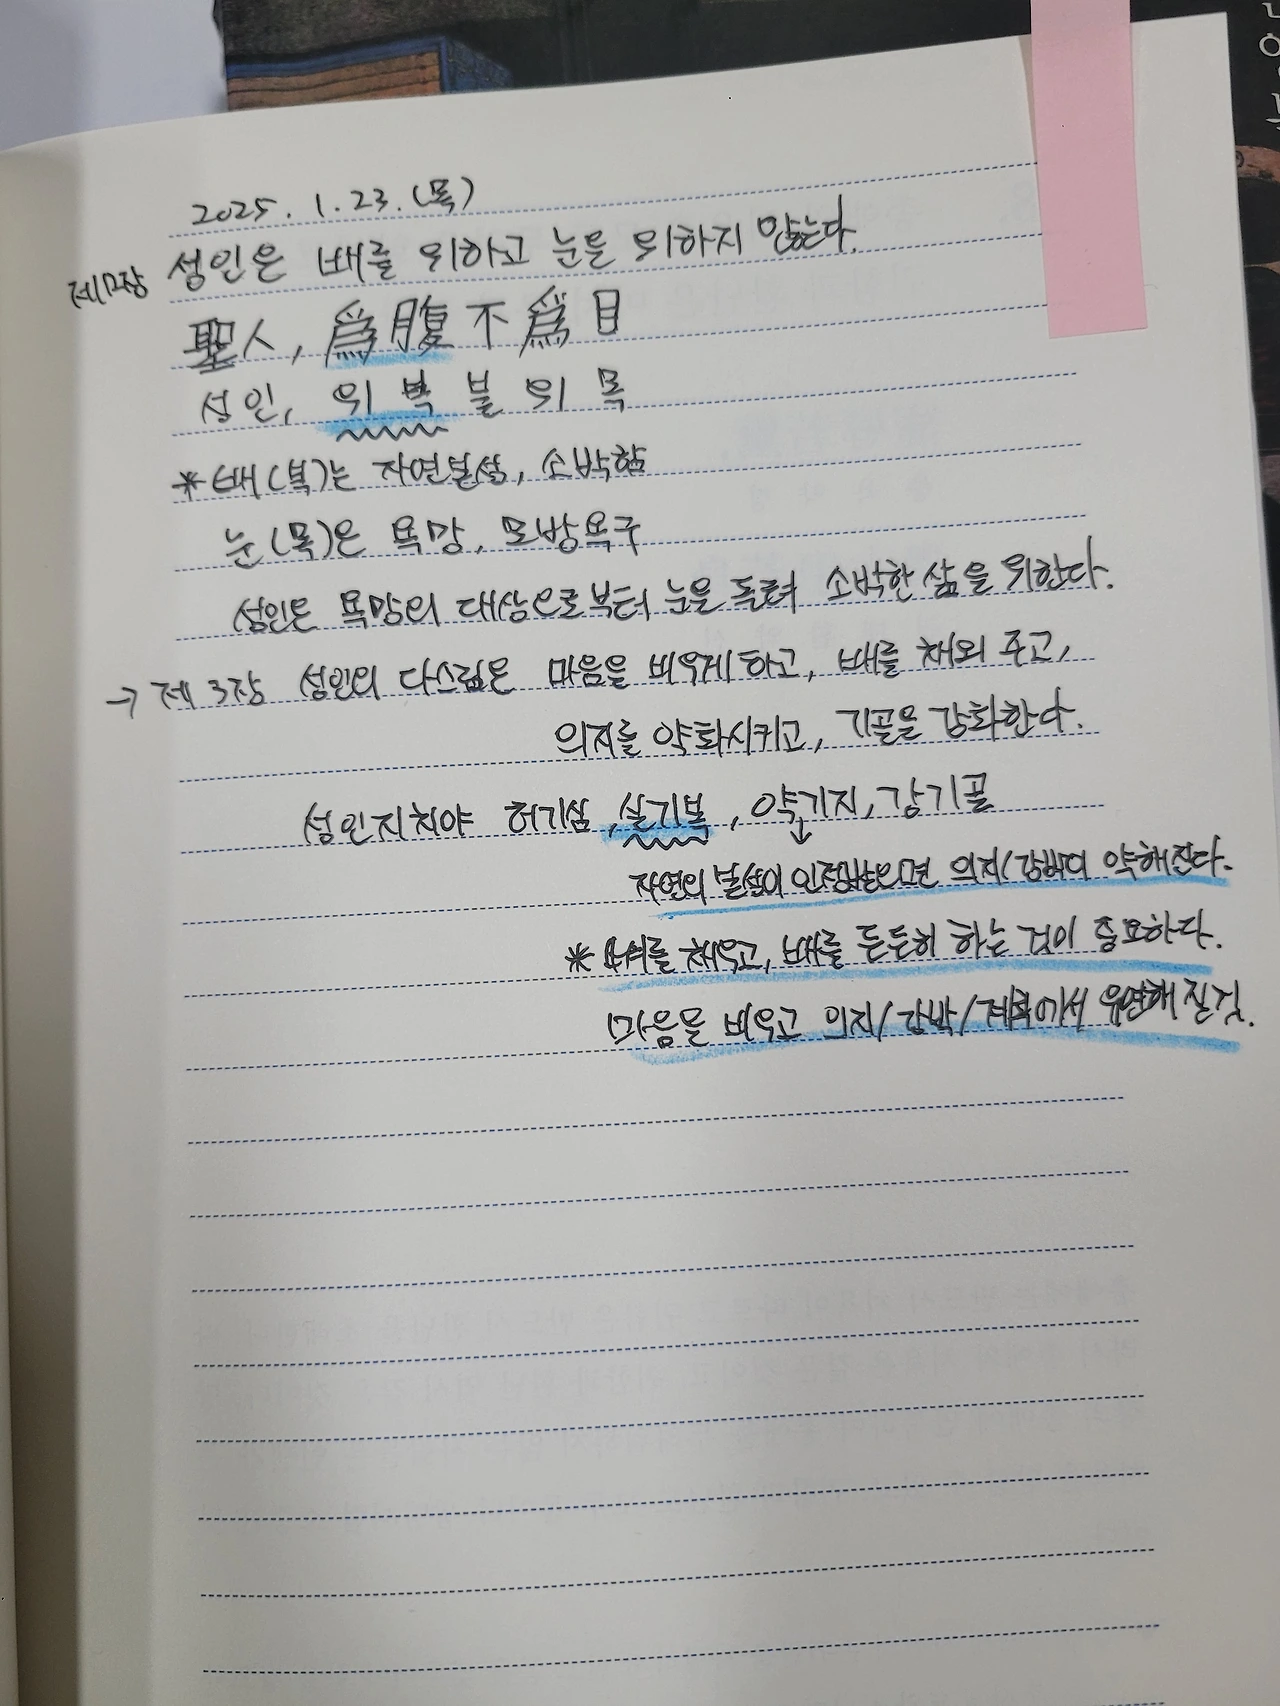 2025. 1. 23. (목)
제12장 성인은 배를 위하고 눈을 위하지 않는다.
聖人, 爲腹不爲目
성인, 위복불위목
* 배(복)는 자연본성, 소박함
눈(목)은 욕망, 모방욕구
성인은 욕망의 대상으로부터 눈을 돌려 소박한 삶을 위한다.
→ 제 3장 성인의 다스림은 마음을 비우게 하고, 배를 채워 주고,
의지를 약화시키고, 기골을 강화한다.
성인지치야 허기심, 실기복, 약기지, 강기골
↓
자연의 본성이 인정받으면 의지/강박이 약해진다.
* 를 채우고, 배를 든든히 하는 것이 중요하다.
마음을 비우고 의지/강박/계획에서 유연해질 것.